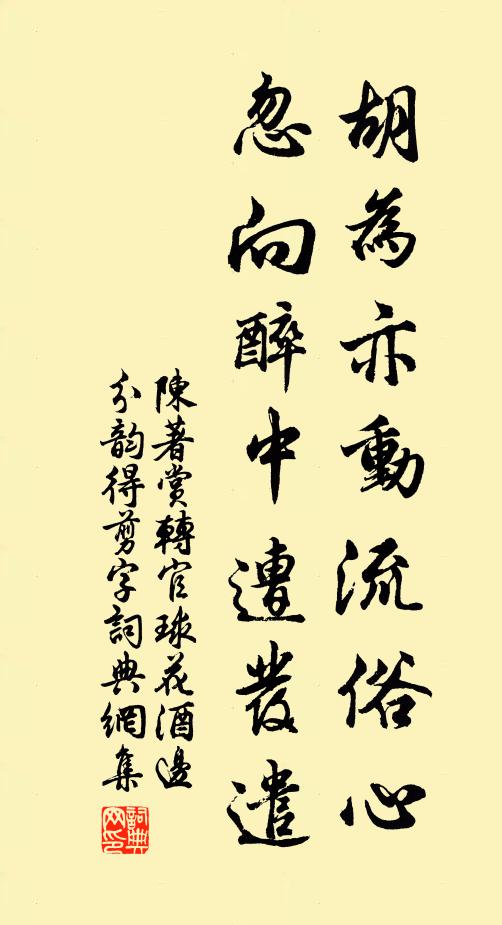 胡為亦動流俗心
忽向醉中遭發遣
陳著賞轉官球花酒邊
分韵得剪字詞典網集
詞典
网印